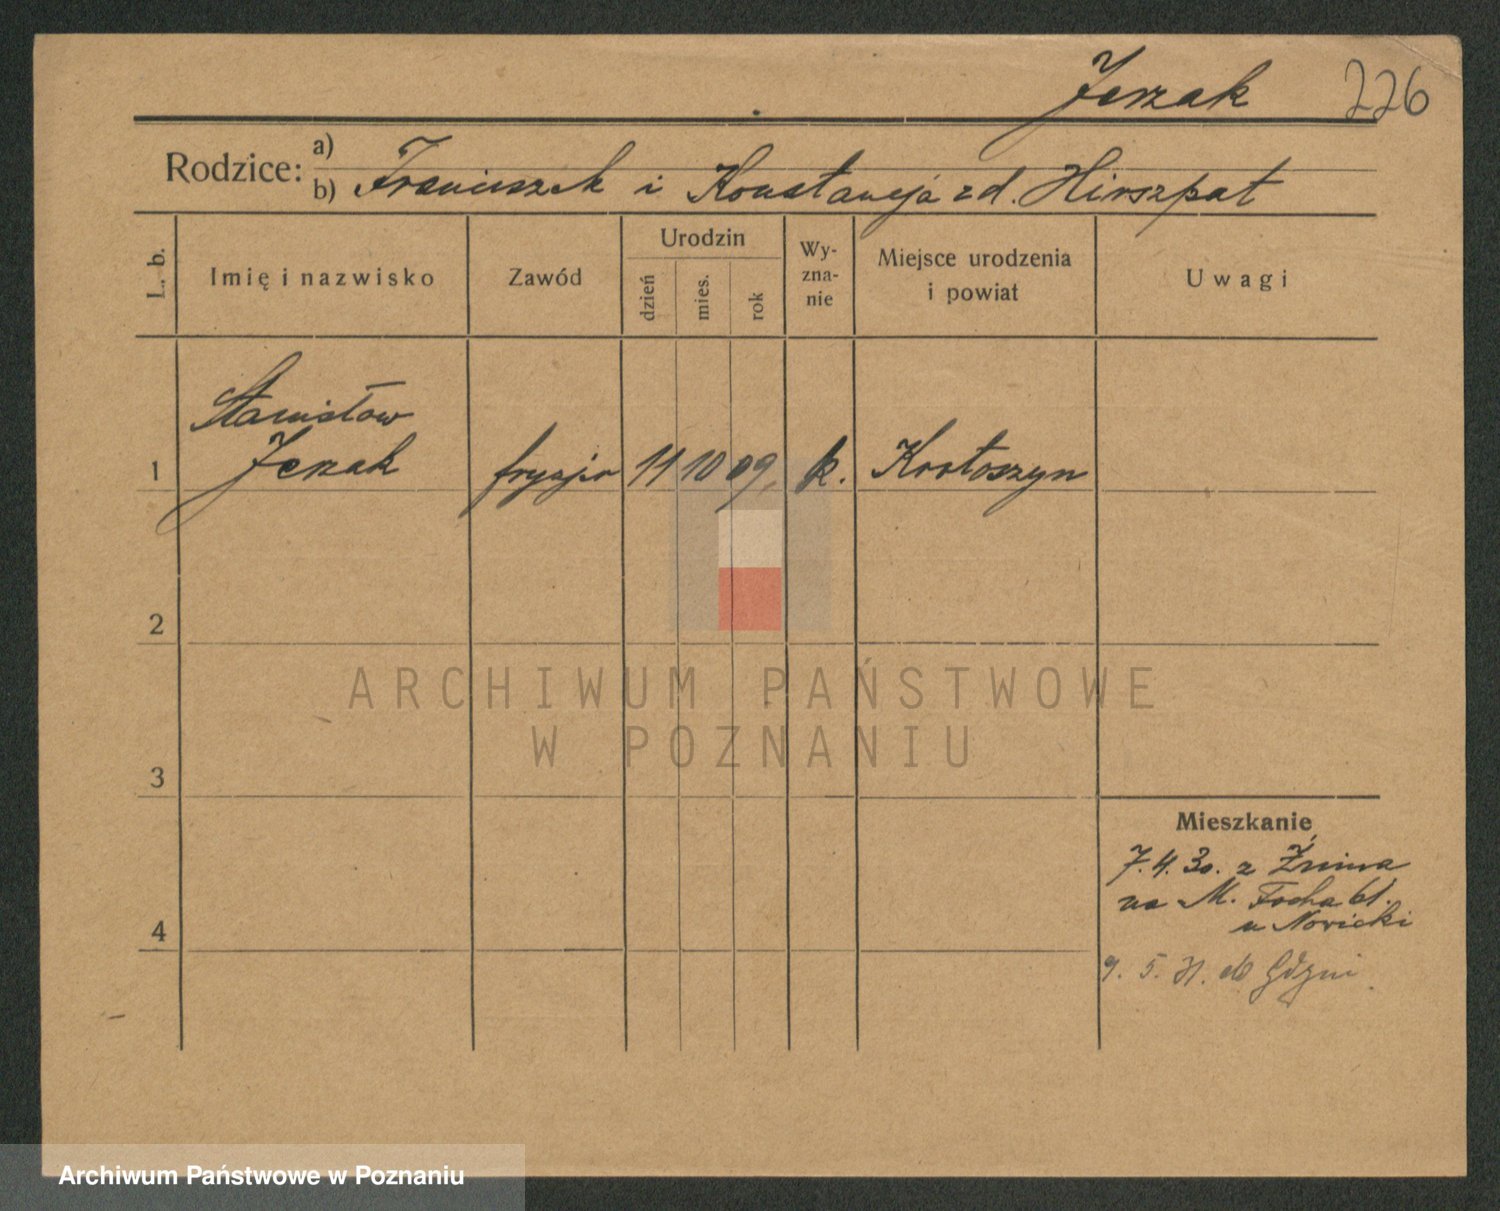 Jerzak 226
Rodzice: a)
b) Franciszek i Konstancja zd. Hirszpat
L. b. Imię i nazwisko Zawód Urodzin dzień mies. rok Wy-zna-nie Miejsce urodzenia i powiat Uwagi
Stanisław
1 Jerzak fryzjer 11 10 09. k. Krotoszyn
2
ARCHIWUM PAŃSTWOWE
W POZNANIU
3
Mieszkanie
7.4.30. z Żnina
na M. Focha 61.
u Nowicki
4
9. 5. 31. do Gdyni
Archiwum Państwowe w Poznaniu